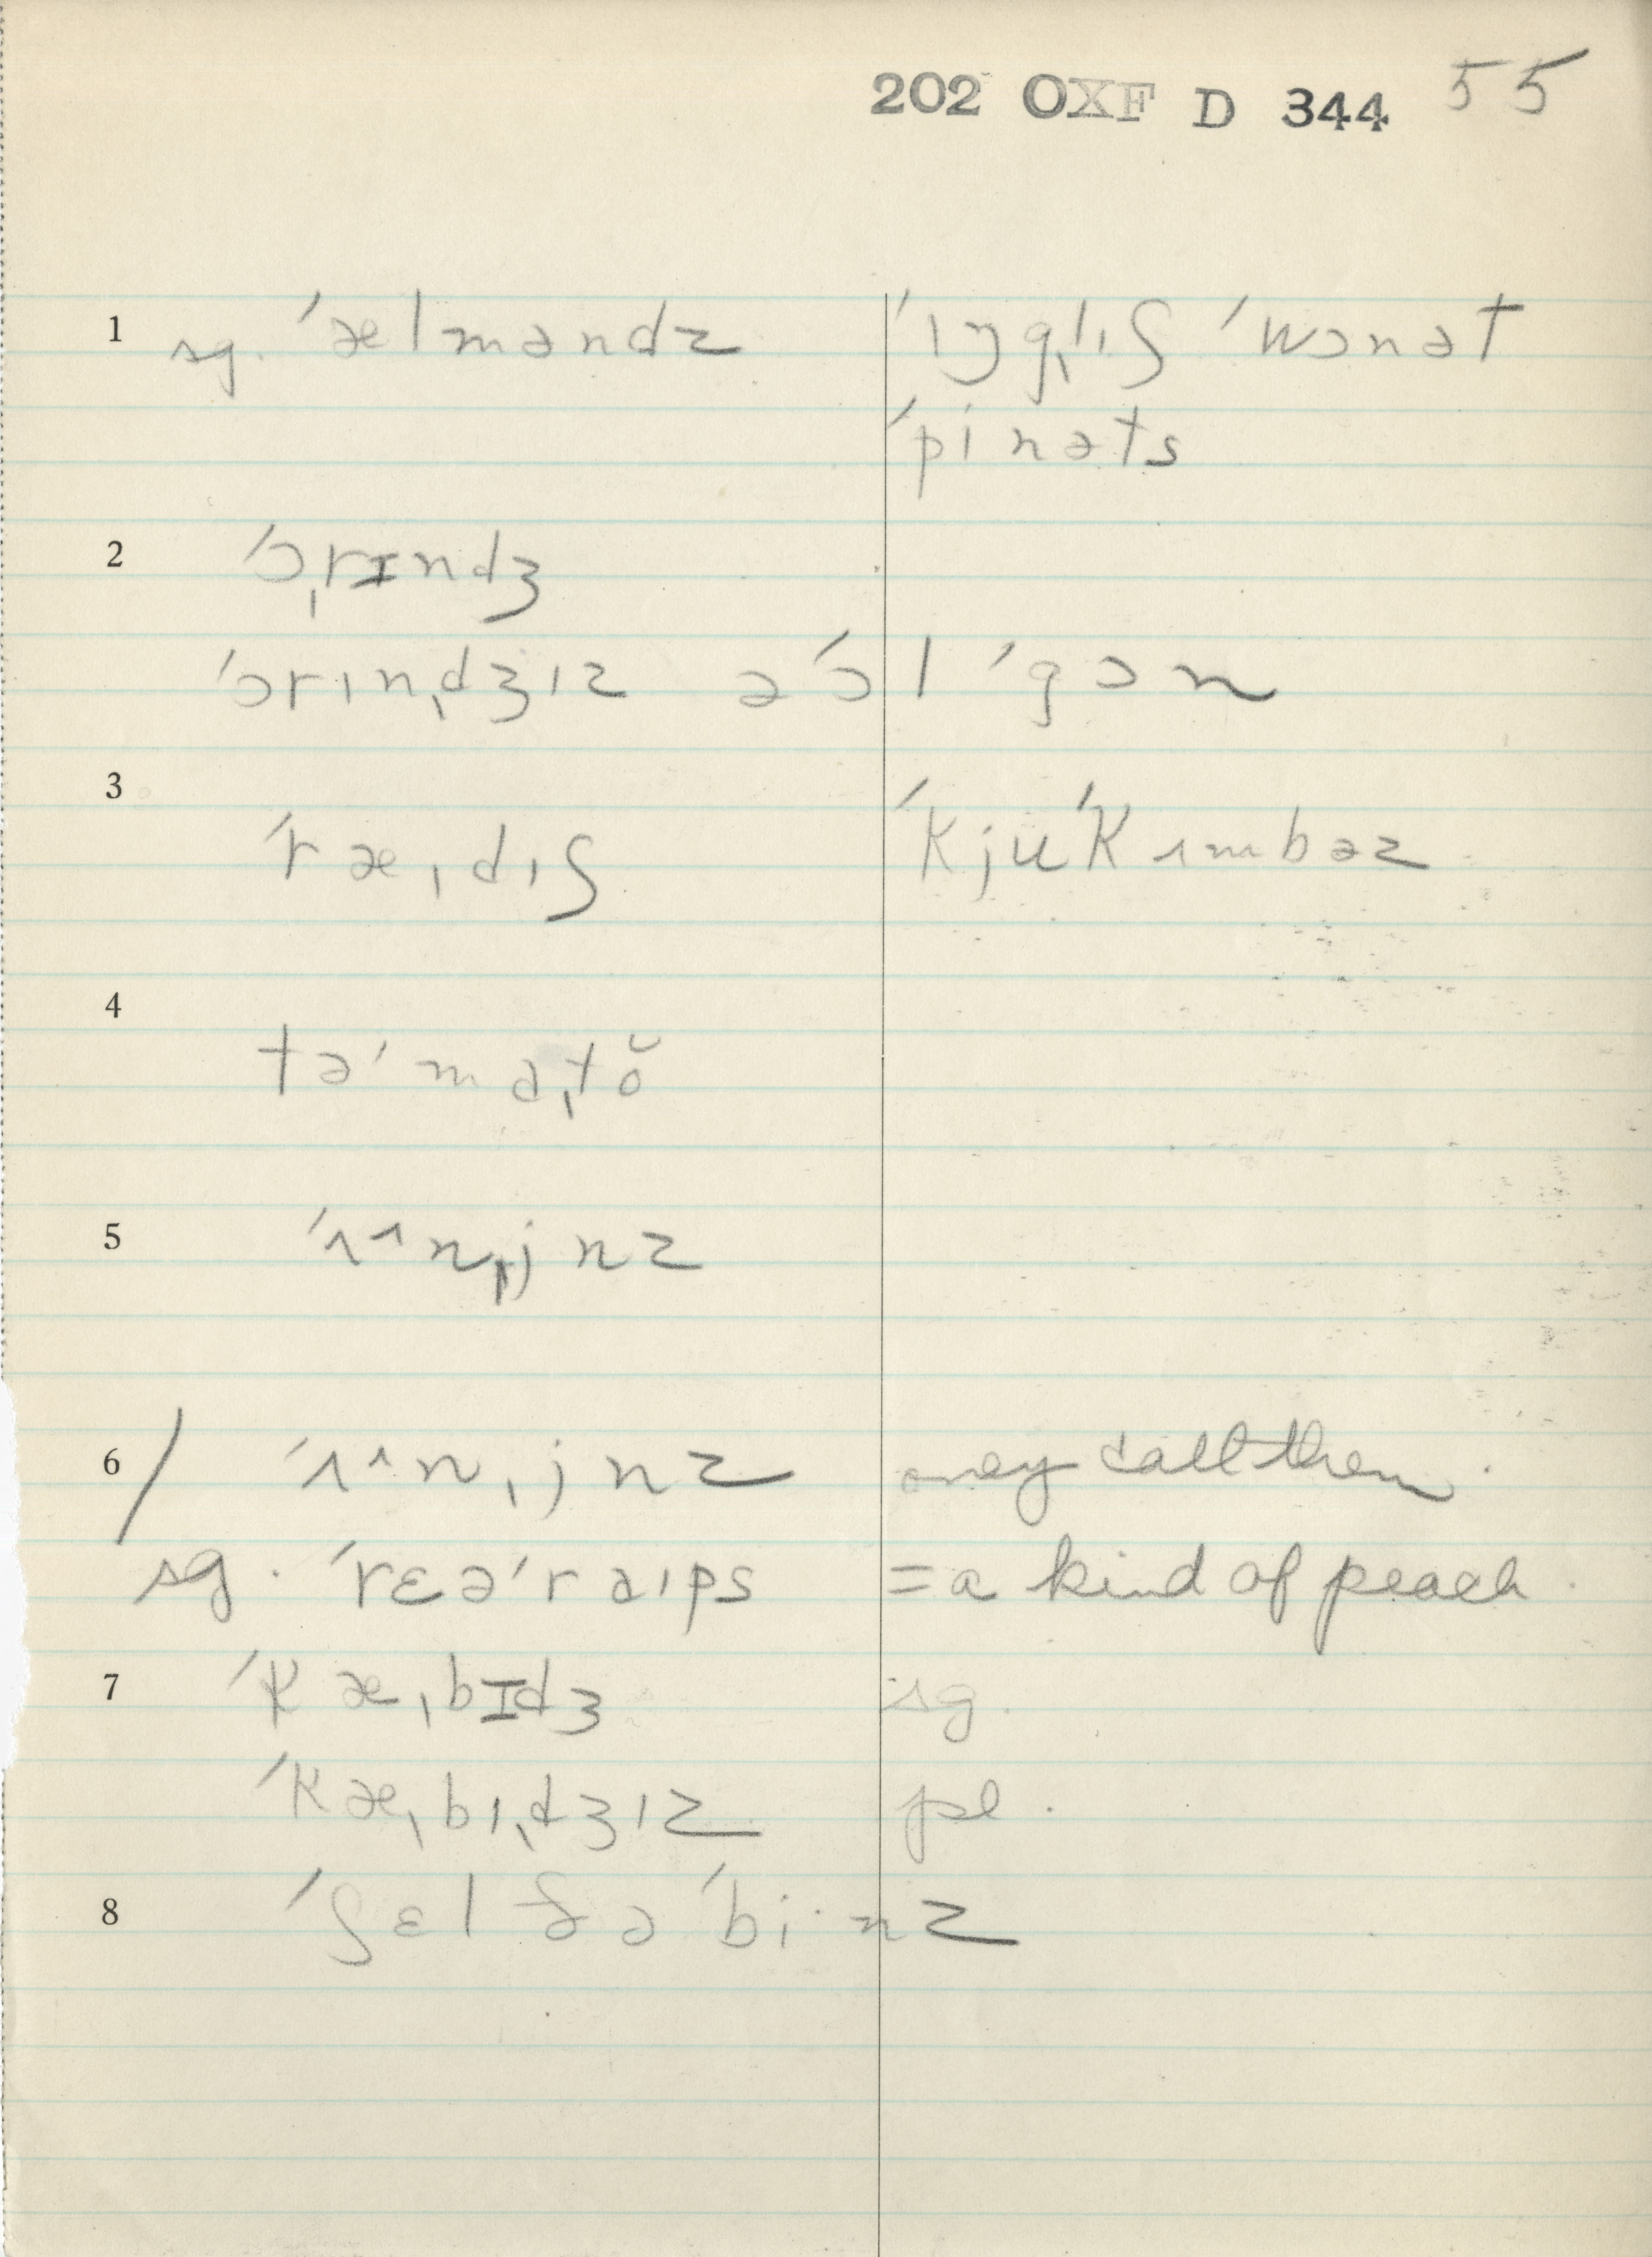 202 OXF D 344 55
1 sg. ˈælməndz ˈɪŋgˌlɪʃ ˈwɔnət
ˈpinəts
2 ˈɔˌrɪndʒ
ˈɔrɪnˌdʒɪz əˈɔl ˈgɔn
3 ˈræˌdɪʃ ˈkjuˈkʌmbəz
4 təˈmɑˌtŏ
5 ˈʌ^nˌjnz
6 / ˈʌ^nˌjnz call them.
sg. ˈrɛəˈraɪps = a kind of peach.
7 ˈkæˌbɪdʒ sg.
ˈkæˌbɪˌdʒɪz pl.
8 ˈʃɛl ðə ˈbi·nz